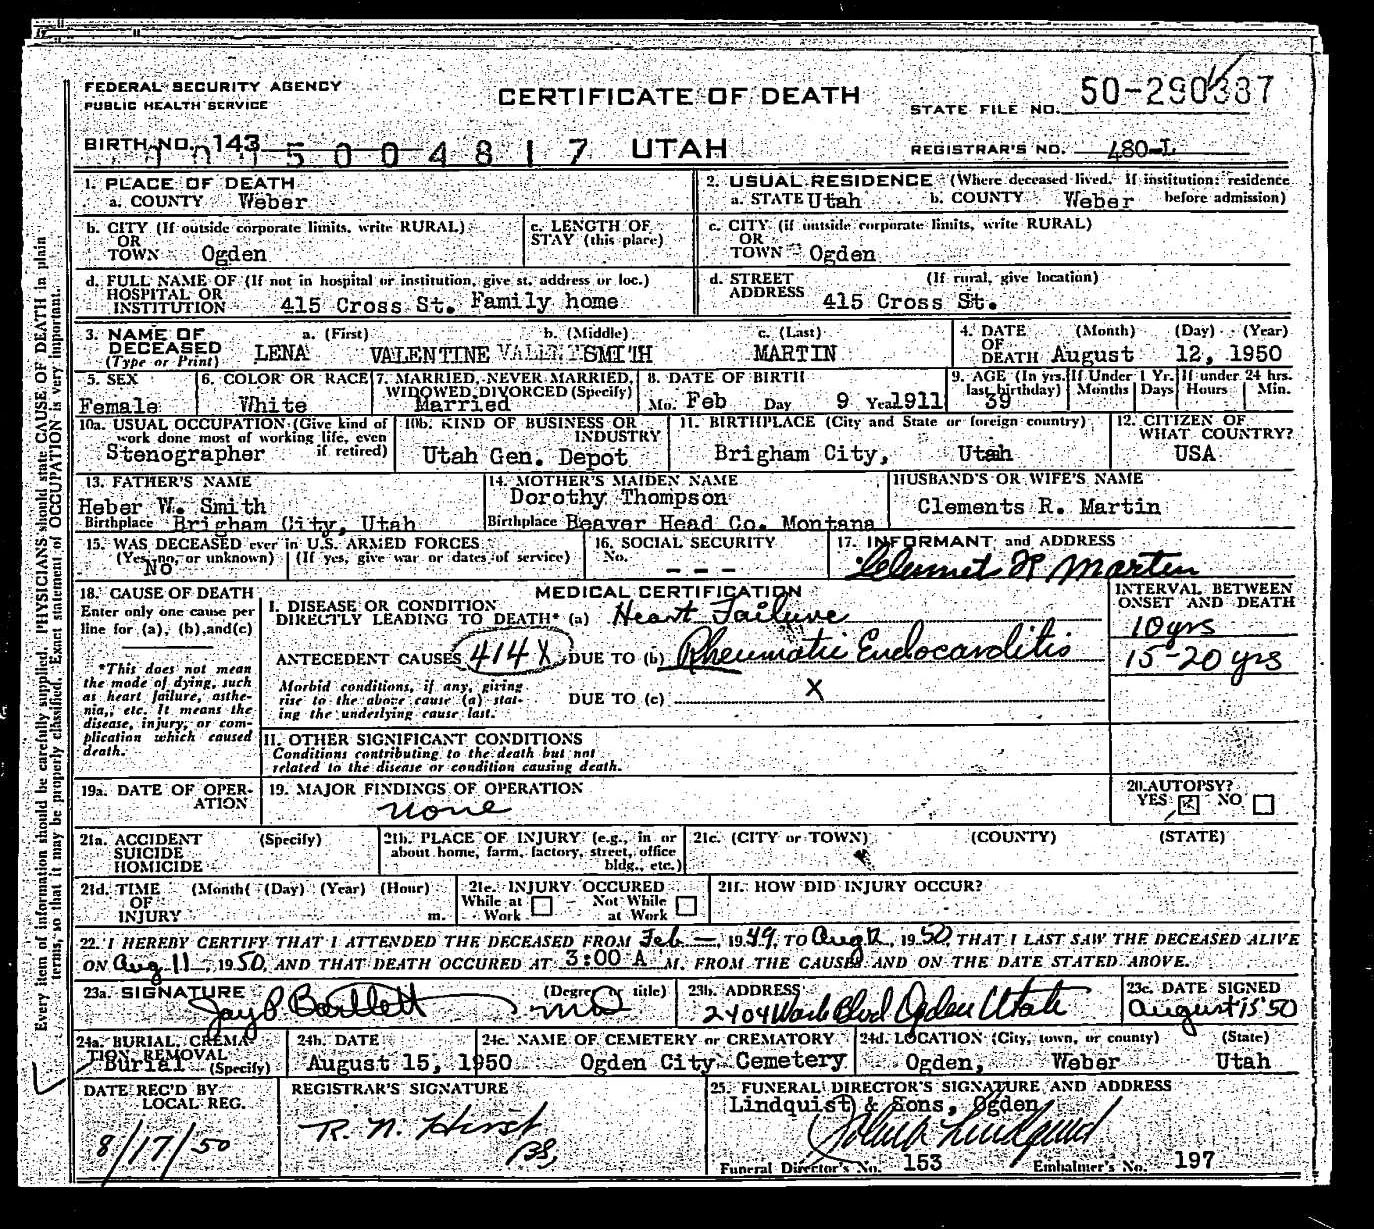 FEDERAL SECURITY AGENCY
PUBLIC HEALTH SERVICE
CERTIFICATE OF DEATH
STATE FILE NO. 50-290387
BIRTH NO. 143 5004817 UTAH
REGISTRAR'S NO. 480-L
1. PLACE OF DEATH
a. COUNTY Weber
2. USUAL RESIDENCE (Where deceased lived. If institution: residence before admission)
a. STATE Utah b. COUNTY Weber
b. CITY (If outside corporate limits, write RURAL) OR TOWN Ogden
c. LENGTH OF STAY (this place)
c. CITY (if outside corporate limits, write RURAL) OR TOWN Ogden
d. FULL NAME OF (If not in hospital or institution, give st. address or loc.) HOSPITAL OR INSTITUTION 415 Cross St. Family home
d. STREET ADDRESS (If rural, give location) 415 Cross St.
3. NAME OF DECEASED (Type or Print)
a. (First) b. (Middle) c. (Last)
LENA VALENTINE SMITH MARTIN
4. DATE OF DEATH (Month) (Day) (Year)
August 12, 1950
5. SEX Female
6. COLOR OR RACE White
7. MARRIED, NEVER MARRIED, WIDOWED, DIVORCED (Specify) Married
8. DATE OF BIRTH
Mo. Feb Day 9 Year 1911
9. AGE (In yrs. last birthday) 39
If Under 1 Yr. Months Days
If under 24 hrs. Hours Min.
10a. USUAL OCCUPATION (Give kind of work done most of working life, even if retired)
Stenographer
10b. KIND OF BUSINESS OR INDUSTRY
Utah Gen. Depot
11. BIRTHPLACE (City and State or foreign country)
Brigham City, Utah
12. CITIZEN OF WHAT COUNTRY?
USA
13. FATHER'S NAME
Heber W. Smith
Birthplace Brigham City, Utah
14. MOTHER'S MAIDEN NAME
Dorothy Thompson
Birthplace Beaver Head Co. Montana
HUSBAND'S OR WIFE'S NAME
Clements R. Martin
15. WAS DECEASED ever in U.S. ARMED FORCES
(Yes, no, or unknown) (If yes, give war or dates of service)
No
16. SOCIAL SECURITY No.
- - -
17. INFORMANT and ADDRESS
Clement R Martin
18. CAUSE OF DEATH
Enter only one cause per line for (a), (b), and (c)
*This does not mean the mode of dying, such as heart failure, asthenia, etc. It means the disease, injury, or complication which caused death.
MEDICAL CERTIFICATION
INTERVAL BETWEEN ONSET AND DEATH
I. DISEASE OR CONDITION DIRECTLY LEADING TO DEATH* (a) Heart Failure 10 yrs
ANTECEDENT CAUSES 414X DUE TO (b) Rheumatic Endocarditis 15-20 yrs
Morbid conditions, if any, giving rise to the above cause (a) stating the underlying cause last.
DUE TO (c) X
II. OTHER SIGNIFICANT CONDITIONS
Conditions contributing to the death but not related to the disease or condition causing death.
19a. DATE OF OPERATION
19. MAJOR FINDINGS OF OPERATION
none
20. AUTOPSY?
YES X NO
21a. ACCIDENT SUICIDE HOMICIDE (Specify)
21b. PLACE OF INJURY (e.g., in or about home, farm, factory, street, office bldg., etc.)
21c. (CITY or TOWN) (COUNTY) (STATE)
21d. TIME OF INJURY (Month( (Day) (Year) (Hour) m.
21e. INJURY OCCURED
While at Work Not While at Work
21f. HOW DID INJURY OCCUR?
22. I HEREBY CERTIFY THAT I ATTENDED THE DECEASED FROM Feb —, 1949, TO Aug 12, 1950, THAT I LAST SAW THE DECEASED ALIVE
ON Aug 11, 1950, AND THAT DEATH OCCURED AT 3:00 A M. FROM THE CAUSES AND ON THE DATE STATED ABOVE.
23a. SIGNATURE (Degree or title)
Jay P Bartlett MD
23b. ADDRESS
2404 Wash Blvd Ogden Utah
23c. DATE SIGNED
August 15 '50
24a. BURIAL, CREMATION, REMOVAL (Specify)
Burial
24b. DATE
August 15, 1950
24c. NAME OF CEMETERY or CREMATORY
Ogden City Cemetery
24d. LOCATION (City, town, or county) (State)
Ogden, Weber Utah
DATE REC'D BY LOCAL REG.
8/17/50
REGISTRAR'S SIGNATURE
R. N. Hirst
25. FUNERAL DIRECTOR'S SIGNATURE AND ADDRESS
Lindquist & Sons, Ogden
Funeral Director's No. 153 Embalmer's No. 197
Every item of information should be carefully supplied. PHYSICIANS should state CAUSE OF DEATH in plain
terms, so that it may be properly classified. Exact statement of OCCUPATION is very important.